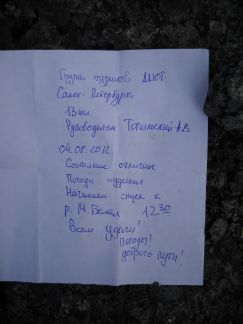 Группа туристов ДЮТ
Санкт-Петербург
13 чел.
Руководитель Топильский А.В.
04.08.2012
Состояние отличное
Погода чудесная
Начинаем спуск к
р. М. Белая 12 30
Всем удачи!
Погоды!
доброго пути!